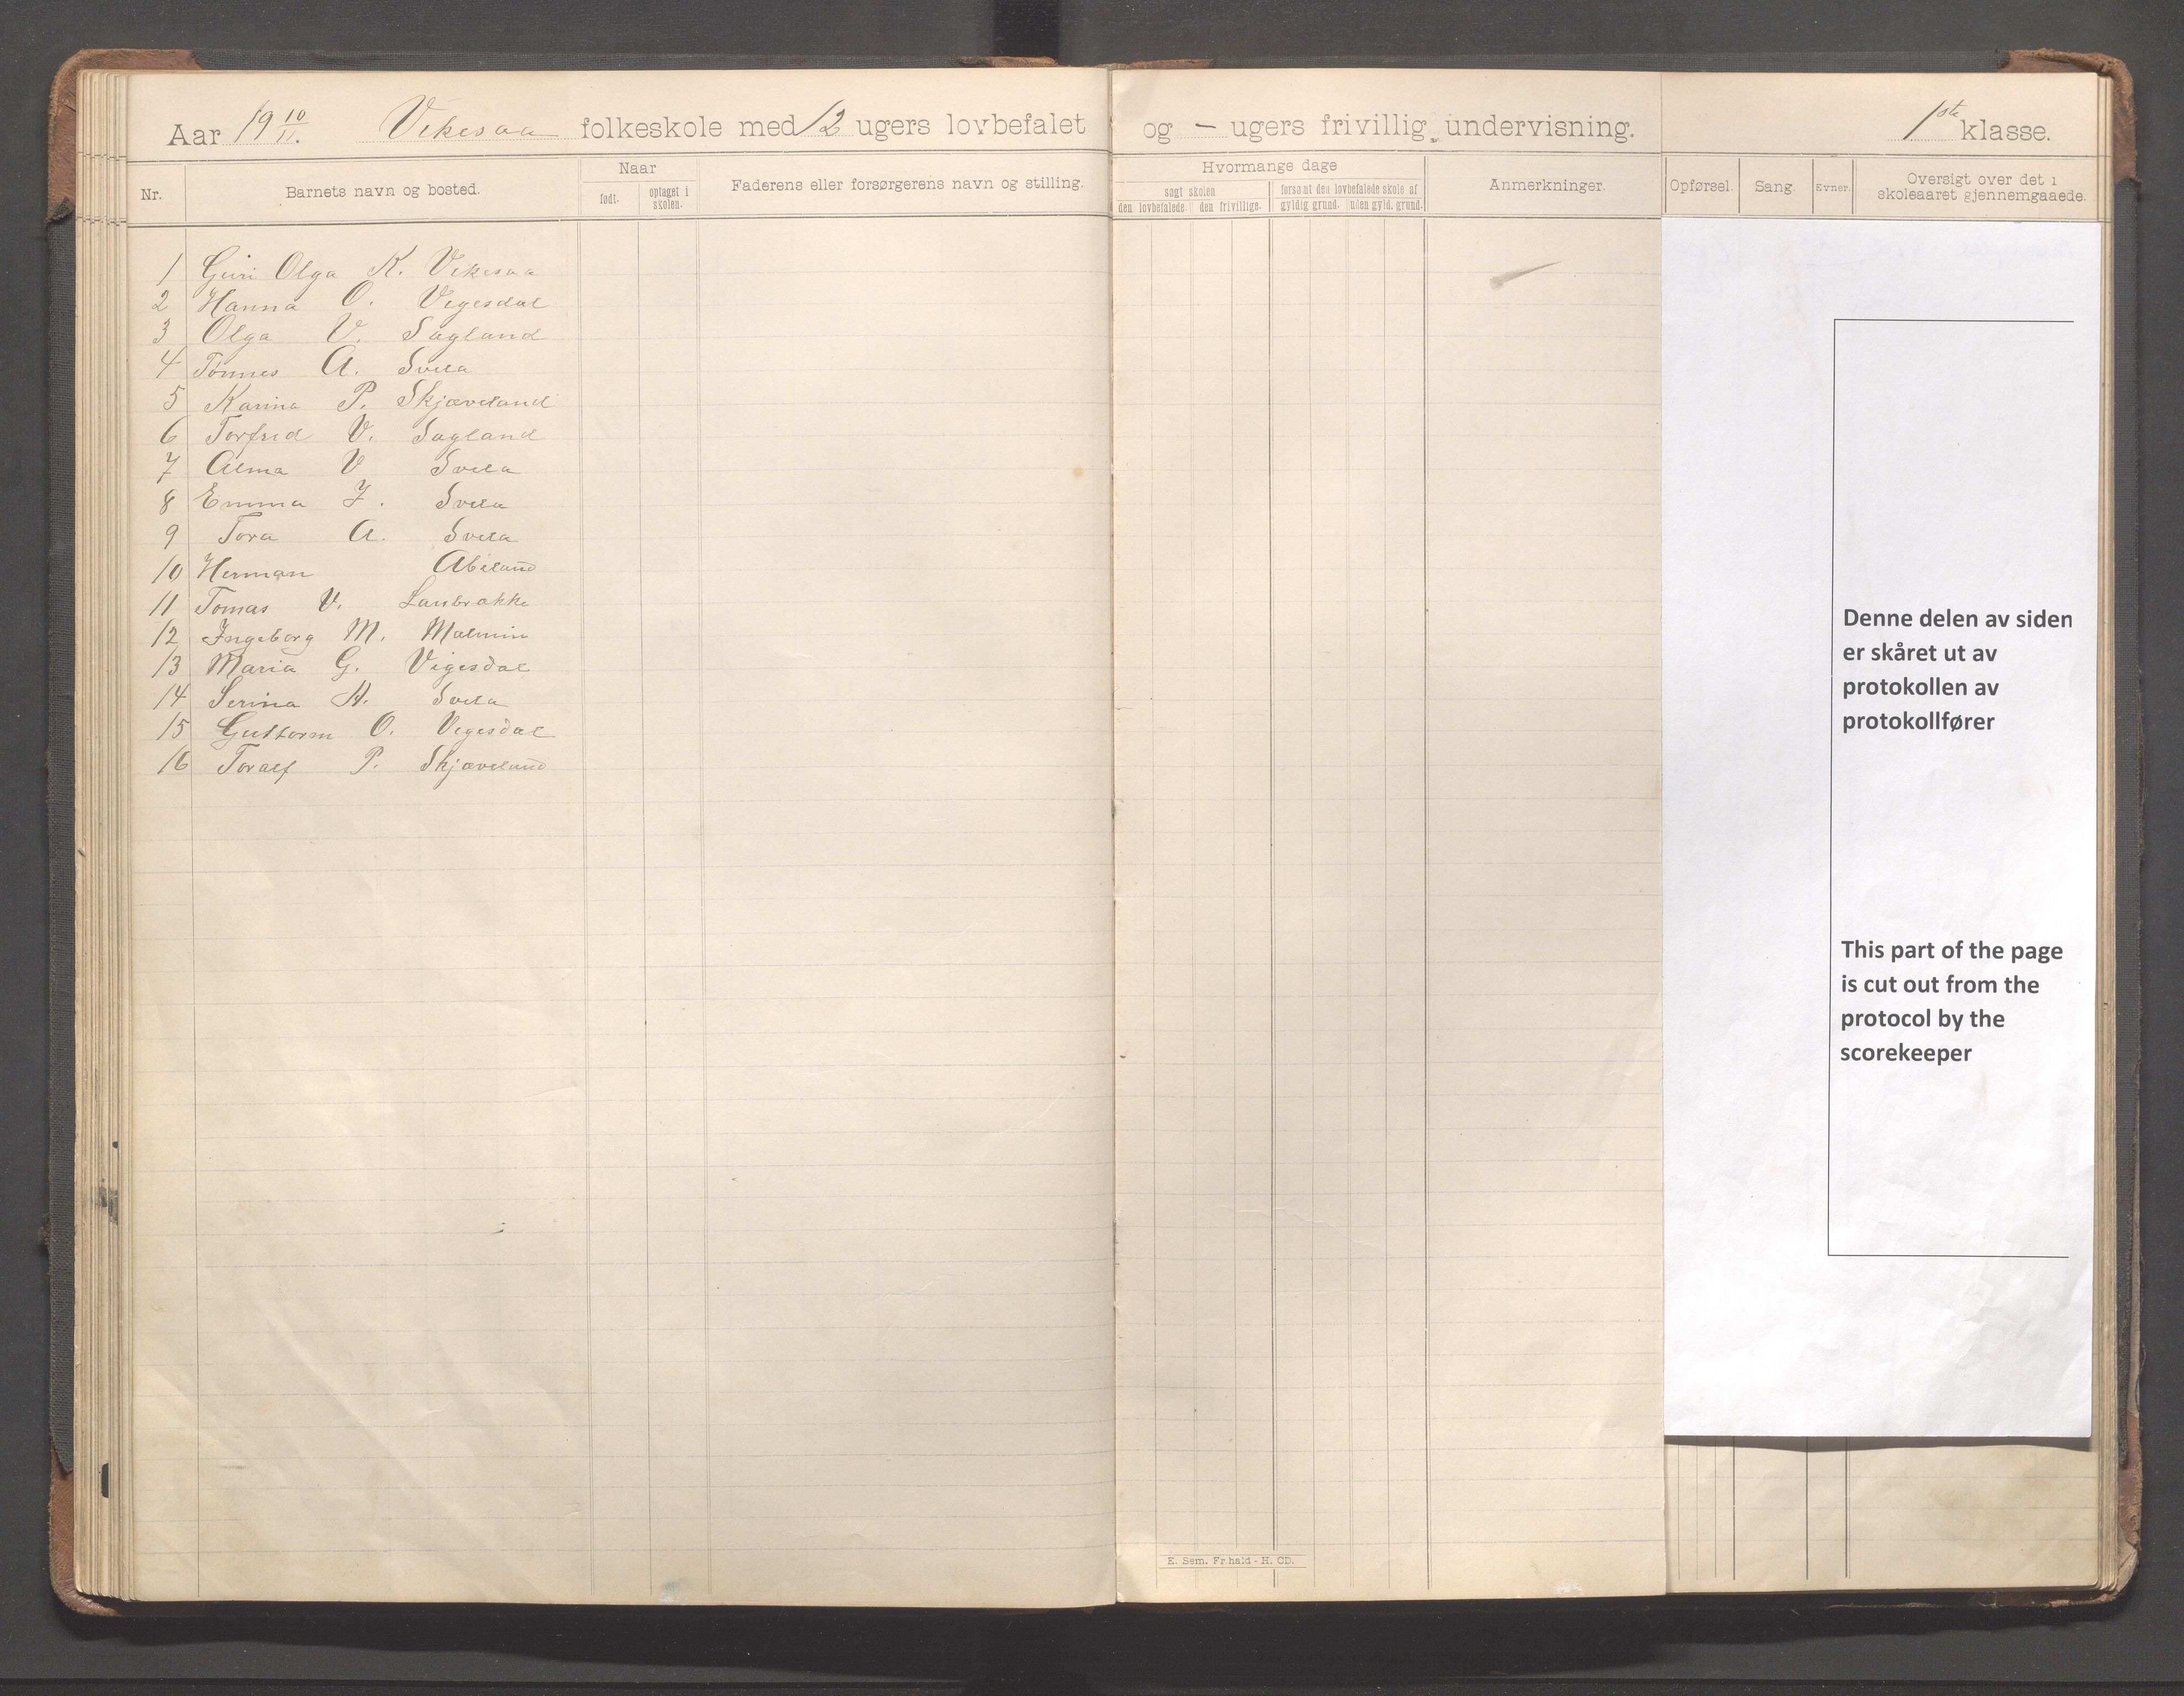 Aar 19 10/11. Vikesaa folkeskole med 12 ugers lovbefalet og – ugers frivillig undervisning. 1ste klasse.
Nr. Barnets navn og bosted. Naar født. optaget i skolen. Faderens eller forsørgerens navn og stilling. Hvormange dage søgt skolen den lovbefalede. den frivillige. forsømt den lovbefalede skole af gyldig grund. uden gyld. grund. Anmerkninger. Opførsel. Sang. Evner. Oversigt over det i skoleaaret gjennemgaaede.
1 Guri Olga K. Vikesaa
2 Hanna O. Vigesdal
3 Olga V. Sagland
4 Tønnes A. Svela
5 Karina P. Skjæveland
6 Torfrid V. Sagland
7 Alma V Svela
8 Emma J. Svela
9 Tora A. Svela
10 Herman Abeland
11 Tomas V. Laubrække
12 Ingeborg M. Malmin
13 Maria G. Vigesdal
14 Serina H. Svela
15 Guttorm O. Vigesdal
16 Toralf P. Skjæveland
Denne delen av siden
er skåret ut av
protokollen av
protokollfører
This part of the page
is cut out from the
protocol by the
scorekeeper
E. Sem. Fr.hald - H. CD.